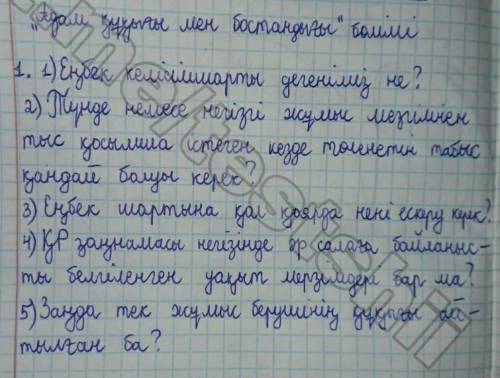 "Адам құқығы мен бостандығы" бөлімі
1. 1) Еңбек келісімшарты дегеніміз не?
2) Түнде немесе негізгі жұмыс мезгілінен
тыс қосымша істеген кезде төленетін табыс
қандай болуы керек?
3) Еңбек шартына қол қоярда нені ескеру керек?
4) ҚР заңнамасы негізінде әр салаға байланыс-
ты белгіленген уақыт мерзімдері бар ма?
5) Заңда тек жұмыс берушінің құқығы ай-
тылған ба?